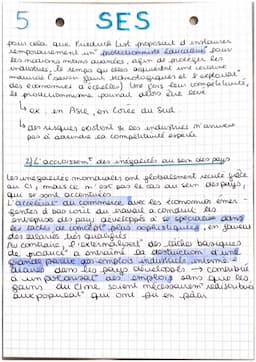 5 SES
pour cela que Friedrich List proposait d'instaurer
temporairement un protectionnisme éducateur pour
les nations moins avancées, afin de protéger les
industries, le temps qu'elles acquièrent une certaine
maturité (savoir faire technologiques et
des économies d'échelles). Une fois leur compétitivité,
le protectionnisme pourrait alors être levé
↳ ex : en Asie, en Corée du Sud
↳ des risques existent si ces industries n'arrivent
pas à atteindre la compétitivité espérée
2) L'accroissemt des inégalités au sein des pays
Les inégalités mondiales ont globalement reculé grâce
au CI, mais ce n'est pas le cas au sein des pays,
où se sont accentuées.
L'accélérat° du commerce avec les économies émer-
gentes à bas coût du travail a conduit des
entreprises des pays développés à se spécialiser dans
les tâches de concept° plus sophistiquées, en faveur
des salariés très qualifiés
Au contraire, l'externalisat° des tâches basiques
de product° a entraîné la destruction d'une
grande partie des emplois industriels intermé-
diaires dans les pays développés → contribué
à un polarisat° des emplois sans que les
gains du CI ne soient nécessairement redistribués
aux populat° qui ont en pâtir